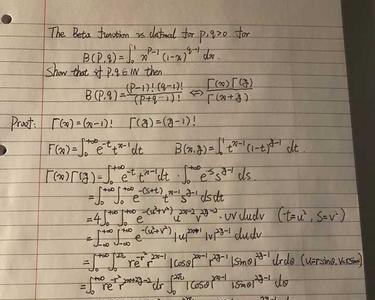 The Beta function is defined for p,q>0 for
B(p,q)=∫₀¹ x^(p-1) (1-x)^(q-1) dx.
Show that if p,q∈ℕ then
B(p,q)=(p-1)!(q-1)!/(p+q-1)! ⇔ Γ(x)Γ(y)/Γ(x+y)
Proof: Γ(x)=(x-1)! Γ(y)=(y-1)!
Γ(x)=∫₀^(+∞) e^(-t) t^(x-1) dt B(x,y)=∫₀¹ t^(x-1) (1-t)^(y-1) dt.
Γ(x)Γ(y)=∫₀^(+∞) e^(-t) t^(x-1) dt · ∫₀^(+∞) e^(-s) s^(y-1) ds.
=∫₀^(+∞) ∫₀^(+∞) e^(-(s+t)) t^(x-1) s^(y-1) ds dt
=4∫₀^(+∞) ∫₀^(+∞) e^(-(u²+v²)) u^(2x-2) v^(2y-2) · uv du dv (t=u², s=v²)
=∫^(+∞) ∫^(+∞) e^(-(u²+v²)) |u|^(2x-1) |v|^(2y-1) du dv
=∫₀^(+∞) ∫₀^(2π) re^(-r²) r^(2x-1) |cosθ|^(2x-1) |sinθ|^(2y-1) dr dθ
=∫₀^(+∞) re^(-r²) r^(2x+2y-2) dr ∫₀^(2π) |cosθ|^(2x-1) |sinθ|^(2y-1) dθ